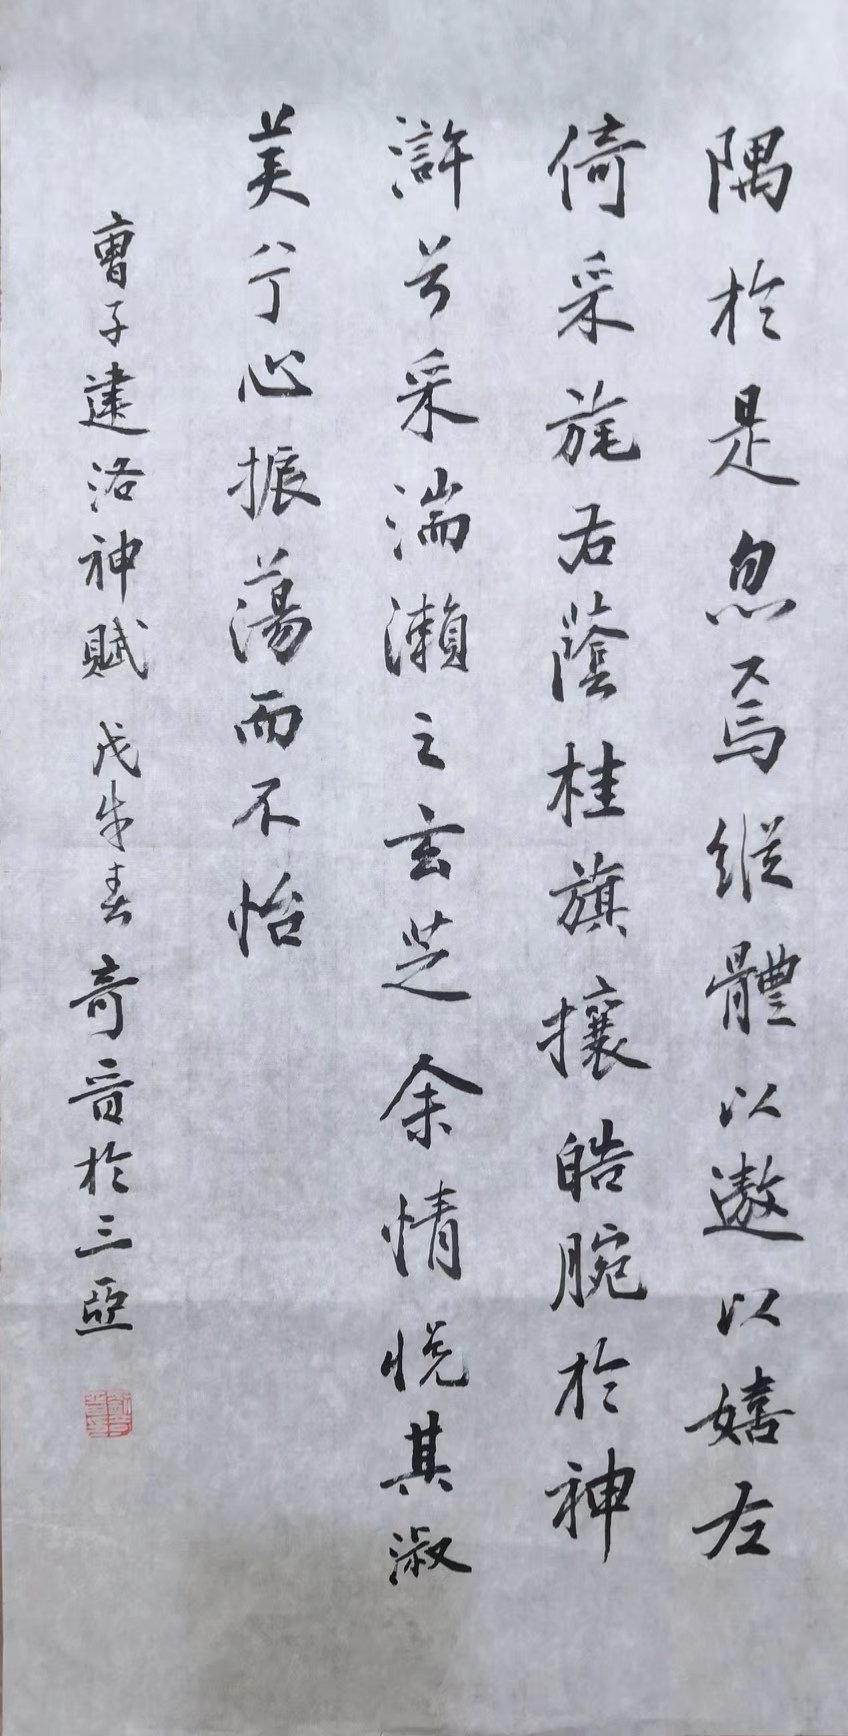 隅於是忽焉縱體以遨以嬉左
倚采旄右蔭桂旗攘皓腕於神
滸兮采湍瀨之玄芝余情悅其淑
美兮心振蕩而不怡
曹子建洛神賦 戊年春奇音於三亞